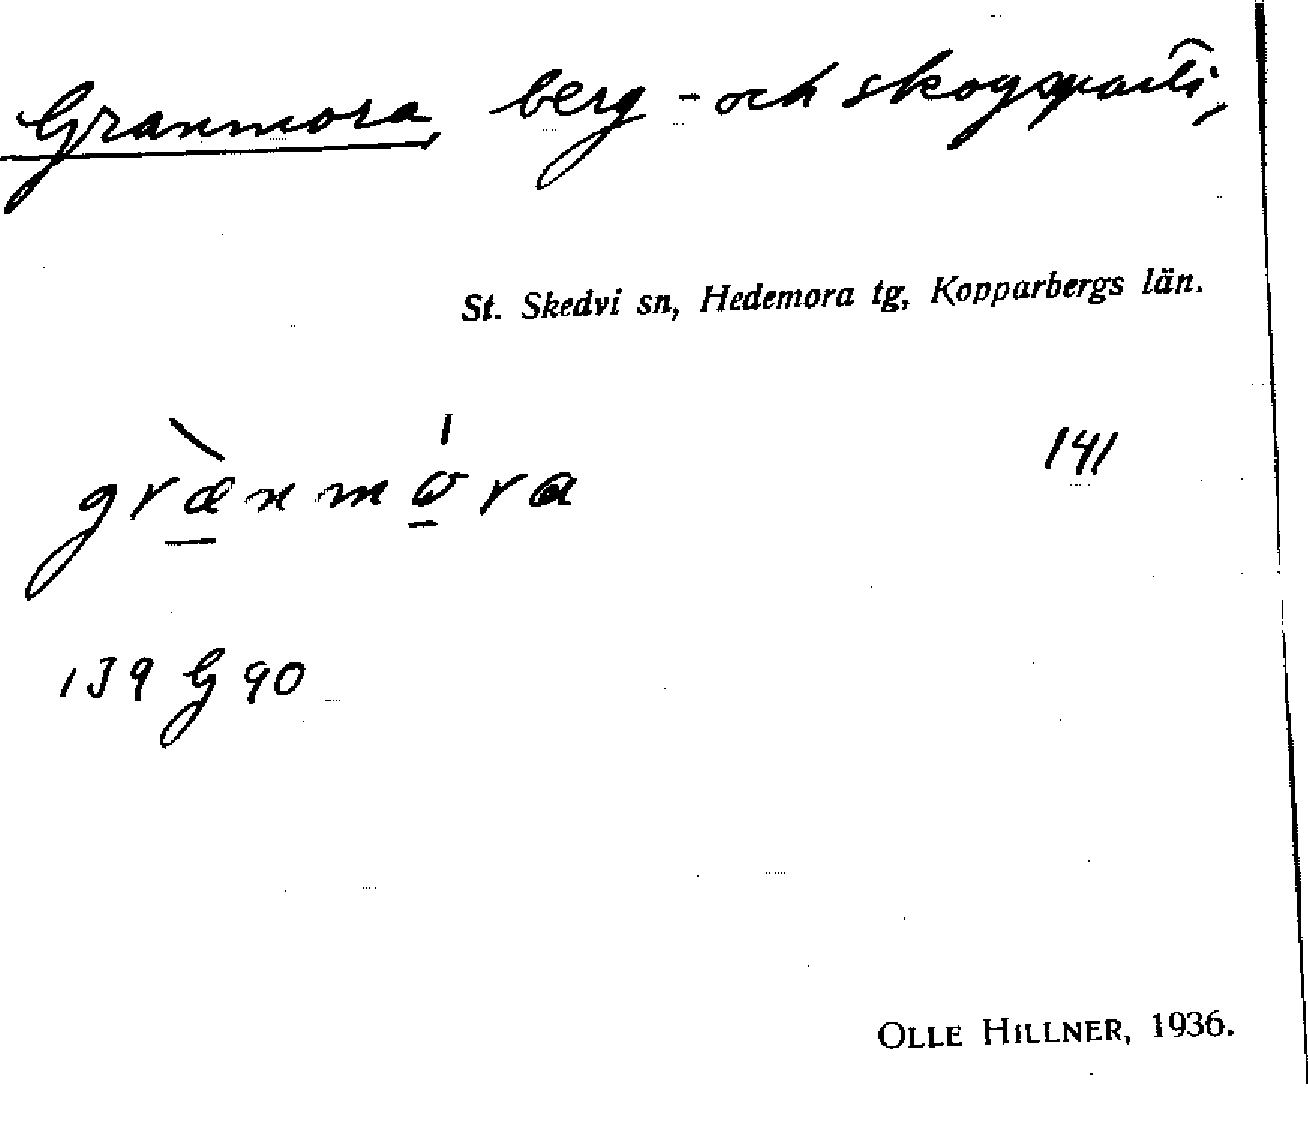 Granmora, berg- och skogsparti,
St. Skedvi sn, Hedemora tg, Kopparbergs län.
141
139 G 90
OLLE HILLNER, 1936.